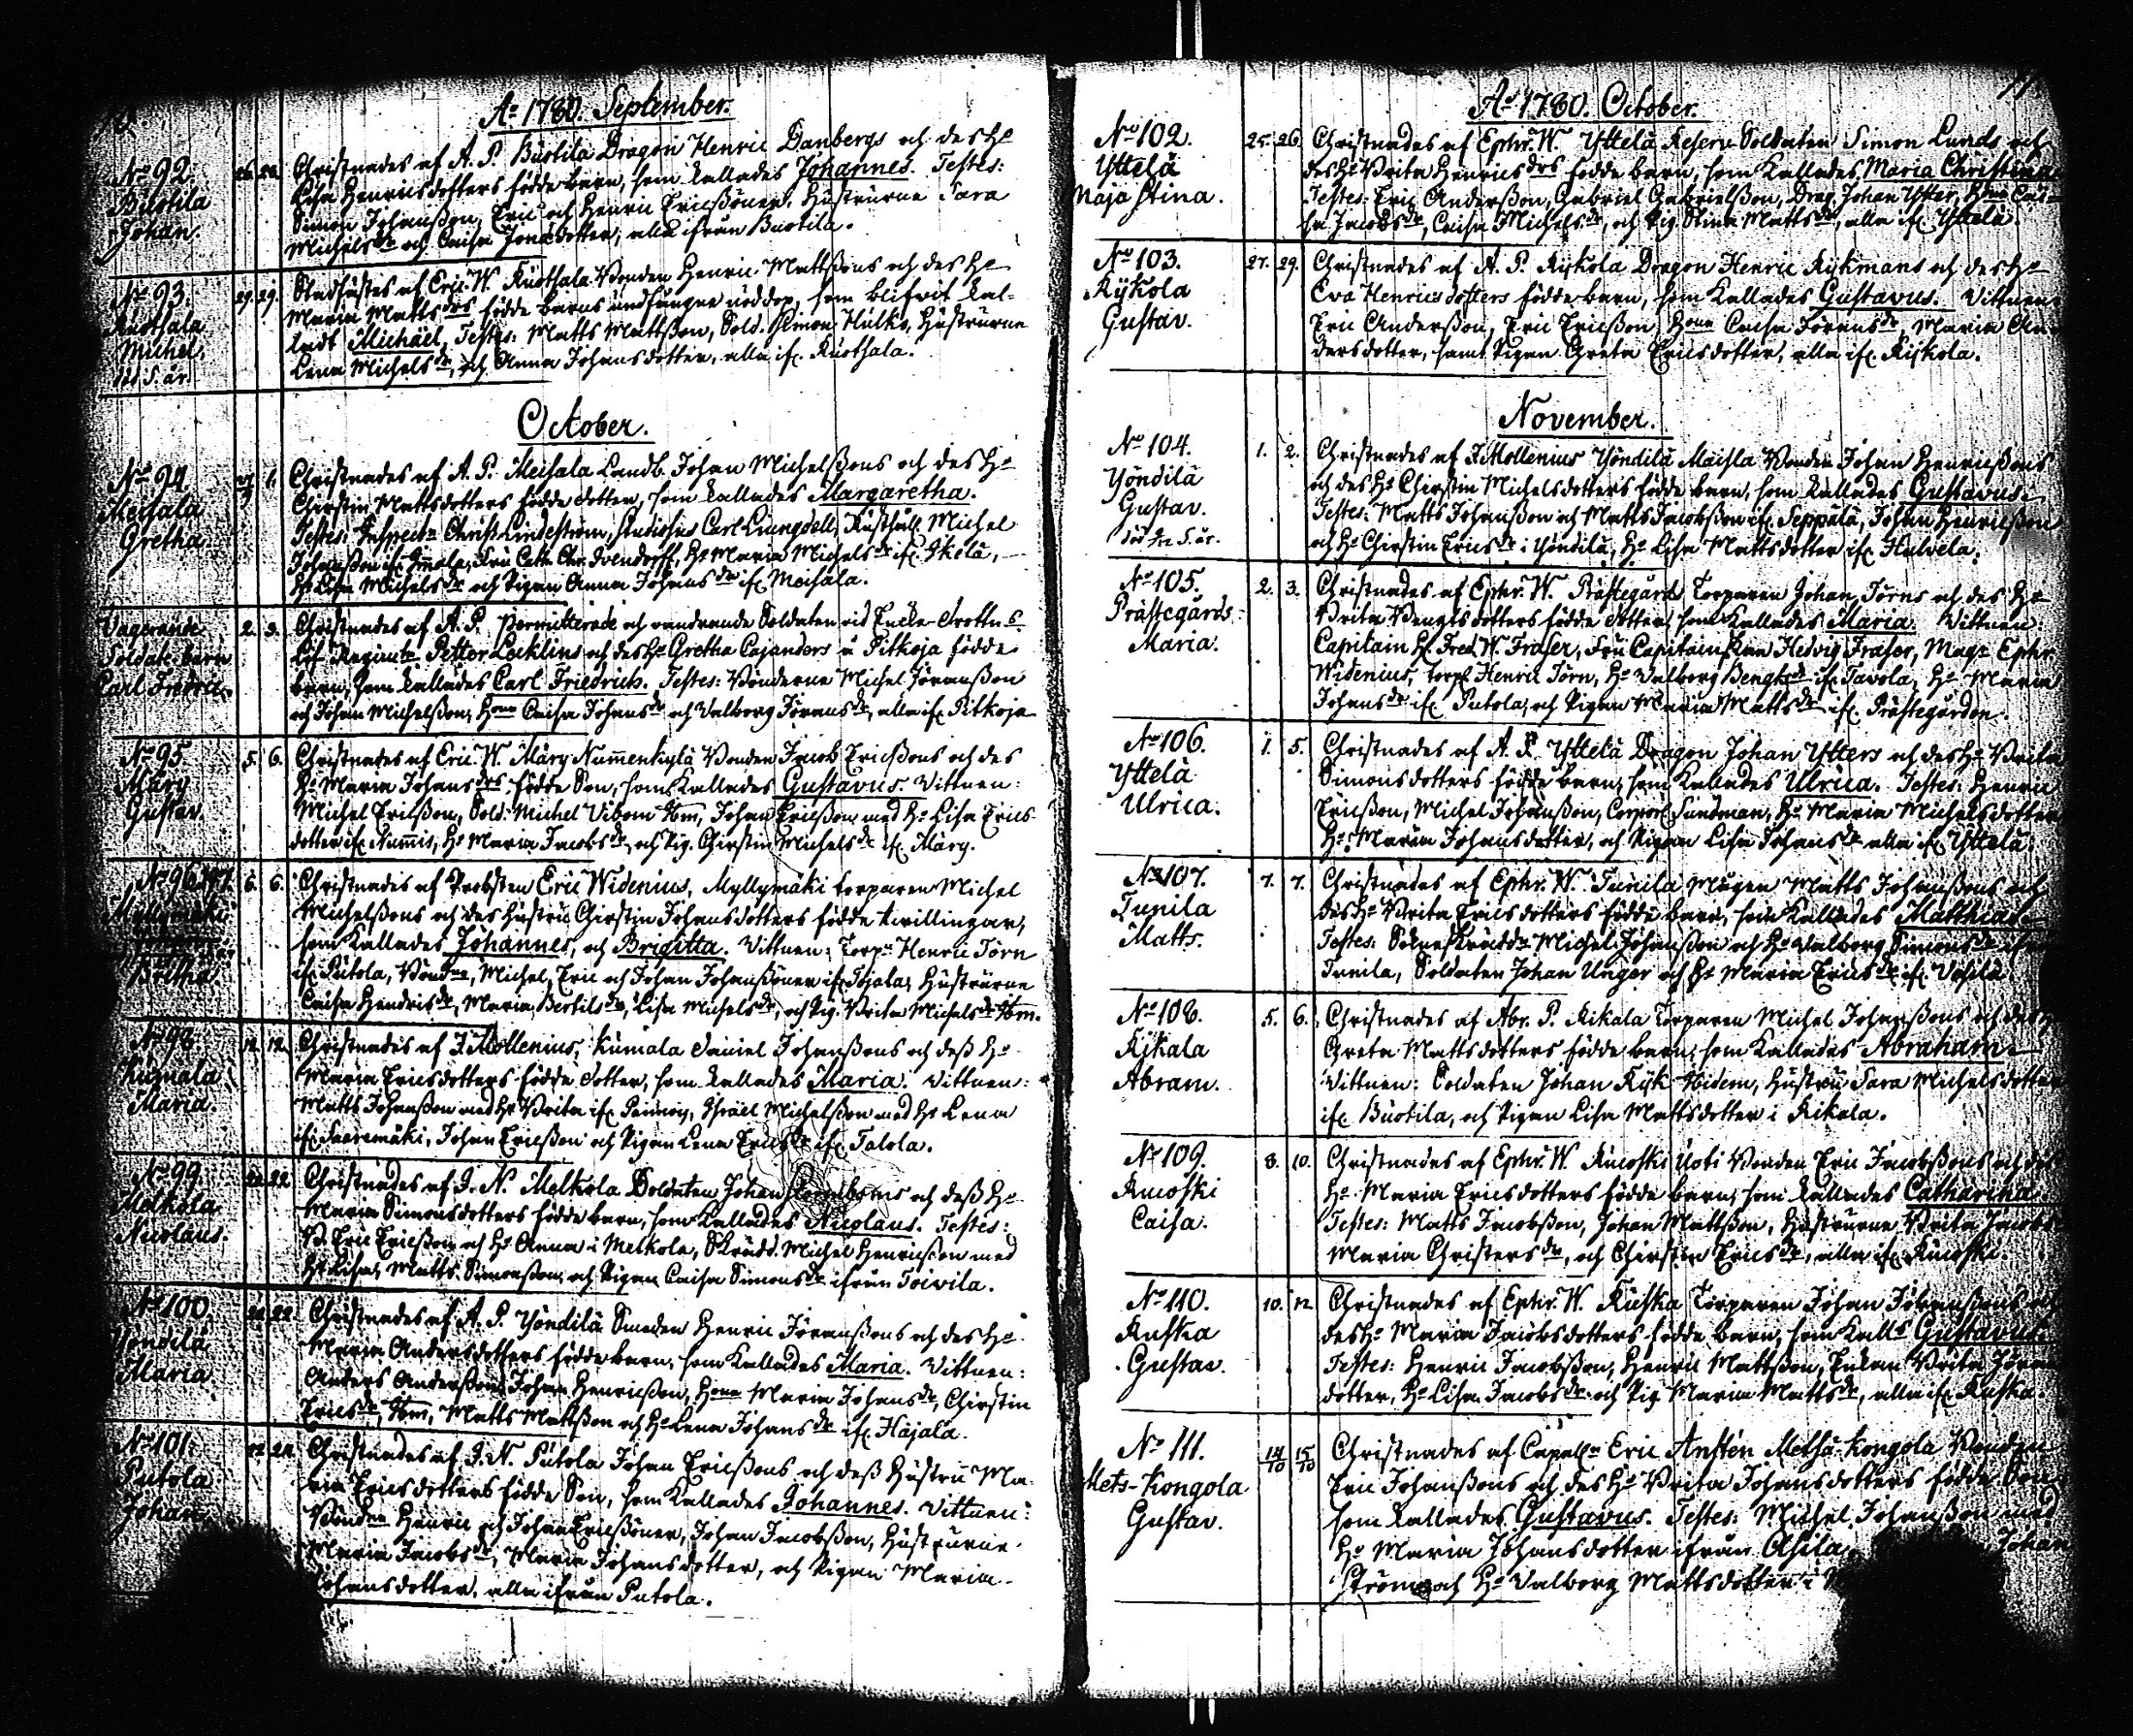 Ao 1780. September.
No 92.
Buotila
Johan.
26. 28.
Christnades af A. P. Buotila Dragon Henric Danbergs och des Ho
Lisa Henricsdotters födde barn, som kallades Johannes. Testes:
Simon Johanßon, Eric och Henric Ericßöner, Hustrurne Sara
Michelsdr och Caisa Jonædotter, alla ifrån Buotila.
No 93.
Kuothala
Michel.
död 5. år.
29. 29.
Stadfästes af Eric. W. Kuothala Bonden Henric Mattßons och des Ho
Maria Mattsdrs födde barns undfångne nöddop, som blifvit kal-
ladt Michäel, Testes: Matts Mattßon, Sold. Simon Hulko, Hustrurne
Lena Michelsdr, och Anna Johansdotter, alla if. Kuothala.
October.
No 94.
Meisala
Gretha.
1.
Christnades af A. P. Meisala Landb. Johan Michelßons och des Ho
Chirstin Mattsdotters födde dotter, som kallades Margaretha.
Testes: Inspector Christ. Lindeström, Studiosus Carl Liungdell, Rusthåll. Michel
Johanßon if. , Fru Cath. Chr. Ivendorff, Ho Maria Michelsdr if. Ikola,
Ho Lisa Michelsdr och Pigan Anna Johansdr if. Meisala.
Vagerande
Soldate-barn
Carl Fredric.
2. 3.
Christnades af A. P. Permitterade och vandrande Soldaten vid Enke-Drottn s
Lif Regimte Petter Lecklins och des Ho Gretha Cajanders i Pitkoja födde
barn, som kallades Carl Friedrich. Testes: Bönderne Michel Jöranßon
och Johan Michelßon, Hona Caisa Johansdr och Valborg Jöransdr, alla if. Pitkoja
No 95.
Märy
Gustav.
5. 6.
Christnades af Eric. W. Märy Nummenkylä Bonden Jacob Ericßons och des
Ho Maria Johansdrs födde Son, som kallades Gustavus. Vittnen:
Michel Ericßon, Sold. Michel Vibom ibm, Johan Ericßon med Ho Lisa Erics-
dotter if. Nummis, Ho Maria Jacobsdr, och Pig. Chirstin Michelsdr if. Märy.
No 96. 97.
Myllymäki
Britha.
6. 6.
Christnades af Probsten Eric Widenius, Myllymäki torparen Michel
Michelßons och des hustru Chirstin Johansdotters födde tvillingar,
som kallades Johannes, och Brigitta. Vittnen: Torpn Henric Törn
if. Putola, Böndne, Michel, Eric och Johan Johanßöner if. Tojala, Hustrurne
Caisa Hendricsdr, Maria Bertilsdr, Lisa Michelsdr, och Pig. Brita Michelsdr ibm.
No 98.
Kumala
Maria.
12. 12.
Christnades af J. Mollenius, Kumala Daniel Johanßons och deß Ho
Maria Ericsdotters födde dotter, som kallades Maria. Vittnen:
Matts Johanßon med Ho Brita if. Pennoy, Israël Michelßon med Ho Lena
if. Saaremäki, Johan Ericßon och Pigan Lena Ericsdr if. Talola.
No 99.
Melkola
Nicolaus.
22. 22.
Christnades af J. N. Melkola Soldaten Johan och deß Ho
Maria Simonsdotters födde barn, som kallades Nicolaus. Testes:
B. Eric Ericßon och Ho Anna i Melkola, Skrädd. Michel Henricßon med
Ho Lisa, Matts Simonßon, och Pigan Caisa Simonsdr ifrån Toivila.
No 100.
Yöndilä
Maria.
22. 22.
Christnades af A. P. Yöndilä Smeden Henric Jöranßons och des Ho
Maria Andersdotters födde barn, som kallades Maria. Vittnen:
Anders Anderßon, Johan Henricßon, Hona Maria Johansdr, Chirstin
Ericsdr, ibm, Matts Mattßon och Ho Lena Johansdr if. Hajala.
No 101.
Putola
Johan
Christnades af J. N. Putola Johan Ericßons och deß Hustru Ma-
ria Ericsdotters födde Son, som kallades Johannes. Vittnen:
Böndne Henric och Johan Ericßöner, Johan Jacobßon, Hustrurne
Maria Jacobsdr, Maria Johansdotter, och Pigan Maria
Johansdotter, alla ifrån Putola.
Ao 1780. October.
No 102.
Yttelä
Maja Stina.
25. 26.
Christnades af Ephr. W. Yttelä Reserv Soldaten Simon Lunds och
des Ho Brita Henricsdrs födde barn, som kallades Maria Christina
Testes: Eric Anderßon, Gabriel Gabrielßon, Drag. Johan Ytter, Hona Cai-
sa Jacobsdr, Caisa Michelsdr, och Pig. Stina Mattsdr, alla if. Yttelä.
No 103.
Rykola
Gustav.
27. 29.
Christnades af A. P. Rykola Dragon Henric Rykmans och des Ho
Eva Henricsdotters födde barn, som kallades Gustavus. Vittnen:
Eric Anderßon, Eric Ericßon, Hona Caisa Jöransdr, Maria An-
dersdotter, samt Pigan Greta Ericsdotter, alla if. Rykola.
November.
No 104.
Yöndilä
Gustav.
1. 2.
Christnades af J. Mollenius Yöndilä Maisla Bonden Johan Henricßons
och des Ho Chirstin Michelsdotters födde barn, som kallades Gustavus.
Testes: Matts Johanßon och Matts Jacobßon if. Seppälä, Johan Henricßon
och Ho Chirstin Ericsdr i Yöndilä, Ho Lisa Mattsdotter if. Halvela.
No 105.
Prästegårds
Maria.
2. 3.
Christnades af Ephr. W. Prästegårds Torparen Johan Törns och des Ho
Brita Bengtsdotters födde dotter, som kallades Maria. Vittnen:
Capitain H. Fred. W. Fraser, Fru Capitainskan Hedvig Fraser, Magr Ephr.
Widenius, torpr Henric Törn, Ho Valborg Bengtsdr if. Tavola, Ho Maria
Johansdr if. Putola, och Pigan Maria Mattsdr if. Prästegården.
No 106.
Yttelä
Ulrica.
1. 5.
Christnades af A. P. Yttelä Dragon Johan Ytters och des Ho Brita
Simonsdotters födde barn, som kallades Ulrica. Testes: Henric
Ericßon, Michel Johanßon, Corporl Sundman, Ho Maria Michelsdotter
Ho Maria Johansdotter, och Pigan Lisa Johansdr alla if. Yttelä.
No 107.
Tunila
Matts.
7. 7.
Christnades af Ephr. W. Tunila Mågen Matts Johanßons och
des Ho Brita Ericsdotters födde barn, som kallades Matthias.
Testes: Sokne Skräddn Michel Johanßon och Ho Valborg Simonsdr if.
Tunila, Soldaten Johan Unger och Ho Maria Ericsdr if. Uhsila
No 108.
Rikala
Abram.
5. 6.
Christnades af Abr. P. Rikala Torparen Michel Johanßons och des Ho
Greta Mattsdotters födde barn, som kallades Abraham.
Vittnen: Soldaten Johan Ryk ibidem, hustru Sara Michelsdotter
if. Buotila, och Pigan Lisa Mattsdotter i Rikala.
No 109.
Rucoski
Caisa.
8. 10.
Christnades af Ephr. W. Rucoski Uoti Bonden Eric Jacobßons och des
Ho Maria Ericsdotters födde barn, som kallades Catharina.
Testes: Matts Jacobßon, Johan Mattßon, Hustrurne Brita Jacobs-
Maria Christersdr, och Chirstin Ericsdr, alla if. Rucoski.
No 110.
Ruska
Gustav.
10. 12.
Christnades af Ephr. W. Ruska Torparen Johan Johanßons och
des Ho Maria Jacobsdotters födde barn, som kalls Gustavus.
Testes: Henric Jacobßon, Henric Mattßon, Enkan Brita Jöran
dotter, Ho Lisa Jacobsdr och Pig Maria Mattsdr, alla if. Ruska.
No 111.
Mets-Kongola
Gustav.
14/10 15/10
Christnades af Capelln Eric Anstén Metsä-Kongola Bonden
Eric Johanßons och des Ho Brita Johansdotters födde Son
som kallades Gustavus. Testes: Michel Johanßon med
Ho Maria Johansdotter ifrån Asila, Johan
Ström och Ho Valborg Mattsdotter i